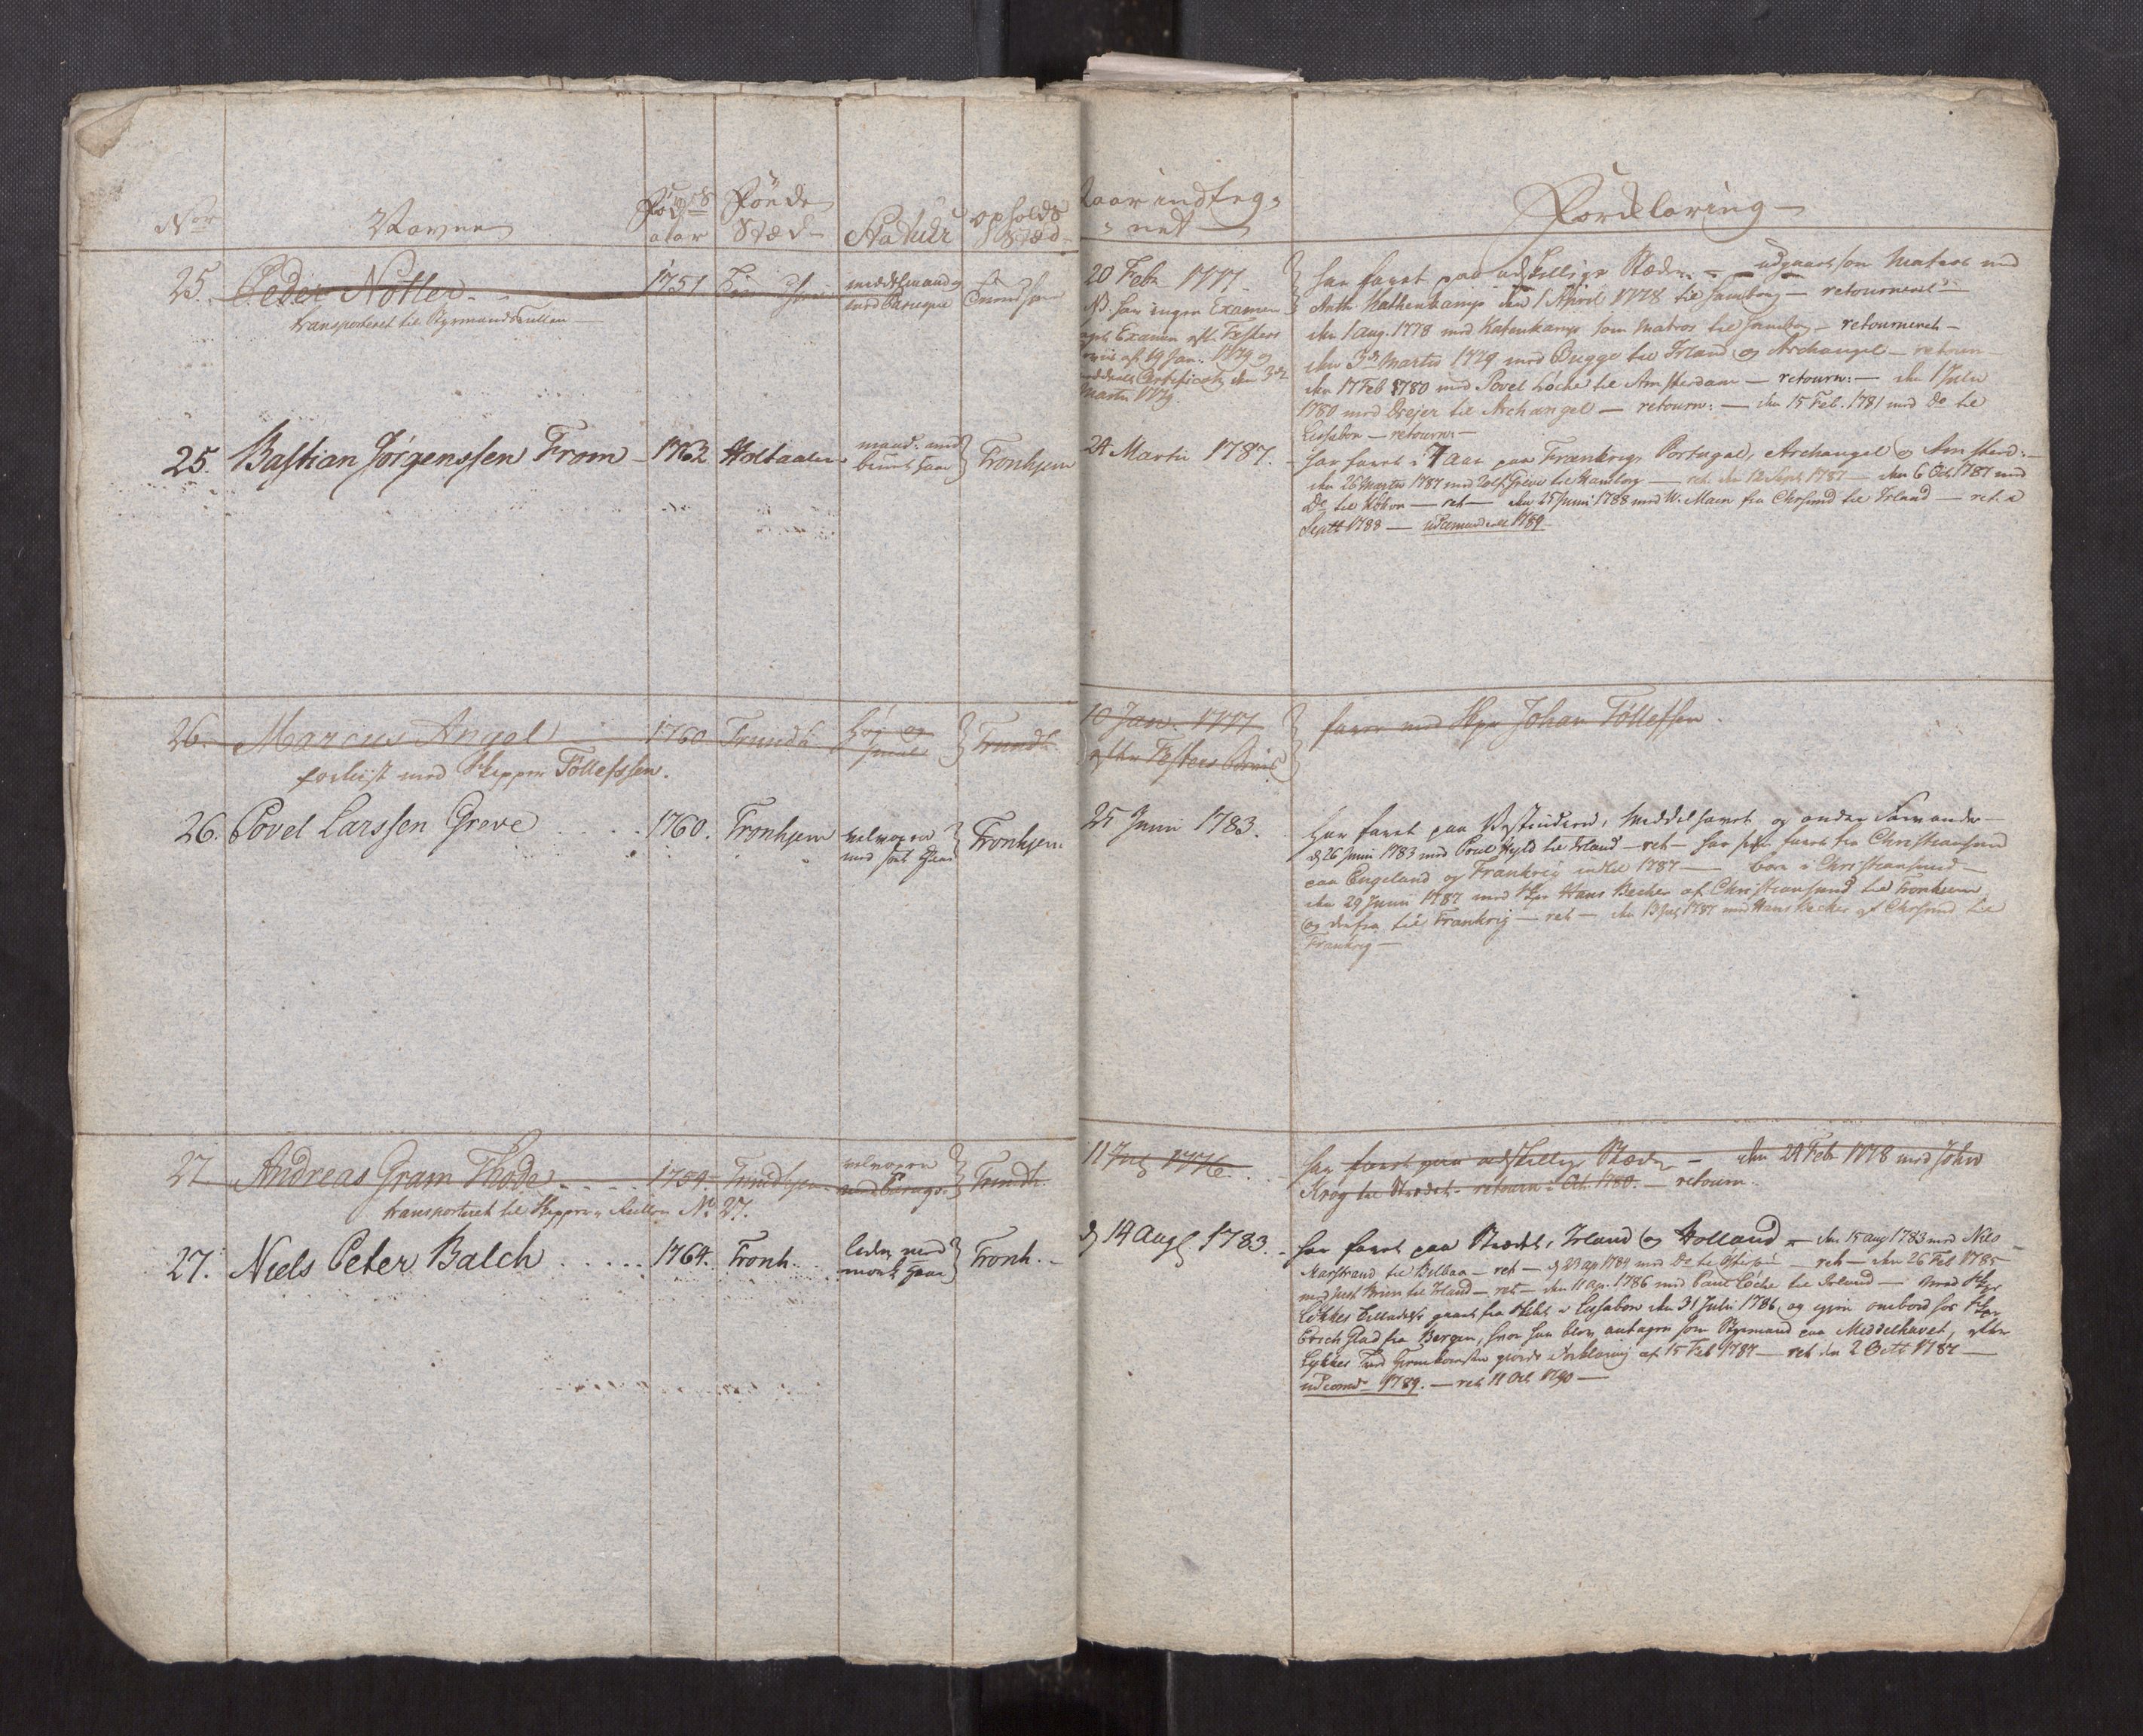 Nor
Navne
Føds
aar
Føde
Stæd
Statur
opholds
Stæd
naar indteg-
net
Forklaring
25. Peder Nøtler 1751
middelmaadig
med Paruque
transporteret til Styrmands Rullen
20 Febr 1777.
NB har ingen Examen
Examen eft. Festers
af 19 Jan. 1779 og
Certificat den 3de
Martii 1779.
har faret paa adskillige Stæder. - udgaaet som Matros med
Anth Kathenkamp den 1 April 1778 til Hamborg - retourneret -
den 1 aug. 1778 med Katenkamp som Matros til Hamborg - retourneret -
den 3de Martii 1779 med Bugge til Irland og Archangel - retourn -
den 17 Feb 1780 med Povel Løche til Amsterdam - retourn: - den 1 Julii
1780 med Drejer til Archangel - retourn: - den 15 Feb. 1781 med do til
Lissabon - retourn: -
25. Bastian Jørgenssen From - 1762 Holtaalen
maad. med
bruut haar
Tronhjem
24 Martii 1787.
har faret i 7 Aar paa Frankrig, Portugal, Archangel og Amsterd: -
den 26 Martii 1787 med Greve til Hamborg - ret. den 12 Sept 1787 - den 6 Oct 1787 med
Do til - ret - den 25 Junii 1788 med W. Main fra Chrsund til Irland - ret. d
Septr 1788 - udcommanderet 1789
26. Marcus Angel 1760 Trundh
høj og
smal
Trundh
forliist med Skipper Tøllefssen.
10 Jan. 1777
efter Festers
farer med Skpr Johan Tøllefsen
26. Povel Larssen Greve 1760. Tronhjem
velvoxen
med sort Haar
Tronhjem
25 Junii 1783.
Har faret paa Vestindien, Middelhavet og andre Farvande -
d 26 Junii 1783 med Poul Hyld til Irland - ret - har siden faret fra Christiansund
paa Engeland og Frankrig indtil 1787 - boer i Christiansund -
den 29 Junii 1787 med Skpr Hans Becker af Christiansund til Tronhiem
og derfra til Frankrig - ret - den 1787 med Hans Becker af Chrsund til
Frankrig -
27. Andreas Gram Thode 1754. Trundhjem
velvoxen
med Paruqve
Trundh.
transporteret til Skipper Rullen No 27.
11 1776.
har faret paa adskillige Stæder - den 24 Feb 1778 med Johan
Krog til - retourn: Oct. 1780. - retourn.
27. Niels Peter Balch 1764. Tronh.
liden med
mørk Haar
Tronh.
d 14 Aug 1783.
har faret paa Strædet, Irland og Holland - den 15 aug 1783 med Niels
Marstrand til Bilbao - ret - d 23 ap 1784 med Do til - ret - den 26 Feb 1785
med til Irland - ret - den 11 Ap. 1786 med Paul Løche til Irland - med Skpr
Løkkes Tilladelse gaaet fra Skibet i Lissabon den 31 Julii 1786, og igjen ombord hos Skpr
Erich Glad fra Bergen, hvor han blev antagen som Styrmand paa Middelhavet, efter
Lykkes hiemkomsten giorde Forklaring af 15 Feb 1787 - ret den 2 Octr 1787 -
udcomd 1789. - ret 11 Oct 1790 -